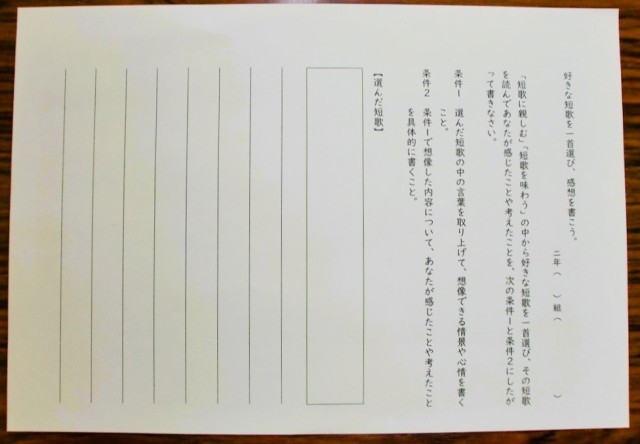 好きな短歌を一首選び、感想を書こう。
二年（　）組（　　　　）
「短歌に親しむ」「短歌を味わう」の中から好きな短歌を一首選び、その短歌
を読んであなたが感じたことや考えたことを、次の条件１と条件２にしたが
って書きなさい。
条件１　選んだ短歌の中の言葉を取り上げて、想像できる情景や心情を書く
こと。
条件２　条件１で想像した内容について、あなたが感じたことや考えたこと
を具体的に書くこと。
【選んだ短歌】